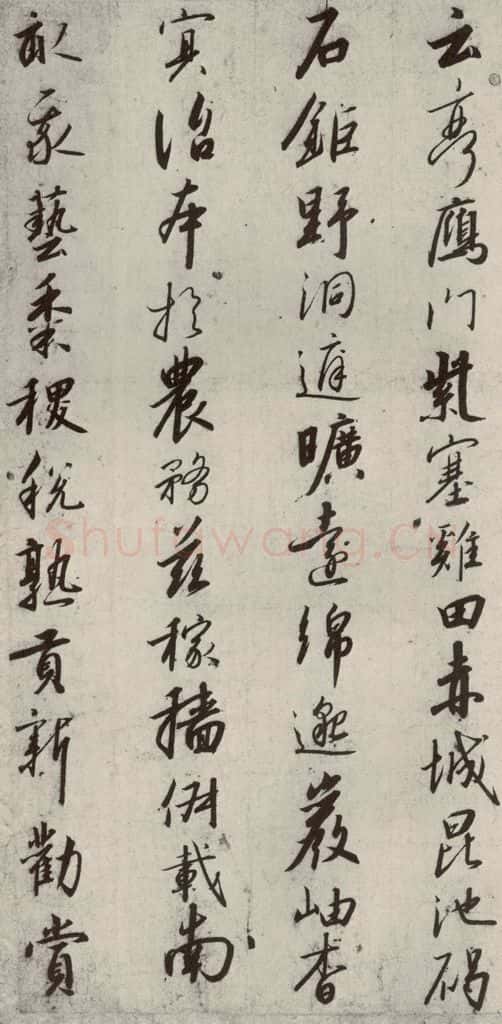 云亭鴈門紫塞雞田赤城昆池碣
石鉅野洞庭曠遠綿邈巖岫杳
冥治本於農務茲稼穡俶載南
畝我藝黍稷稅熟貢新勸賞
Shufawang.cn